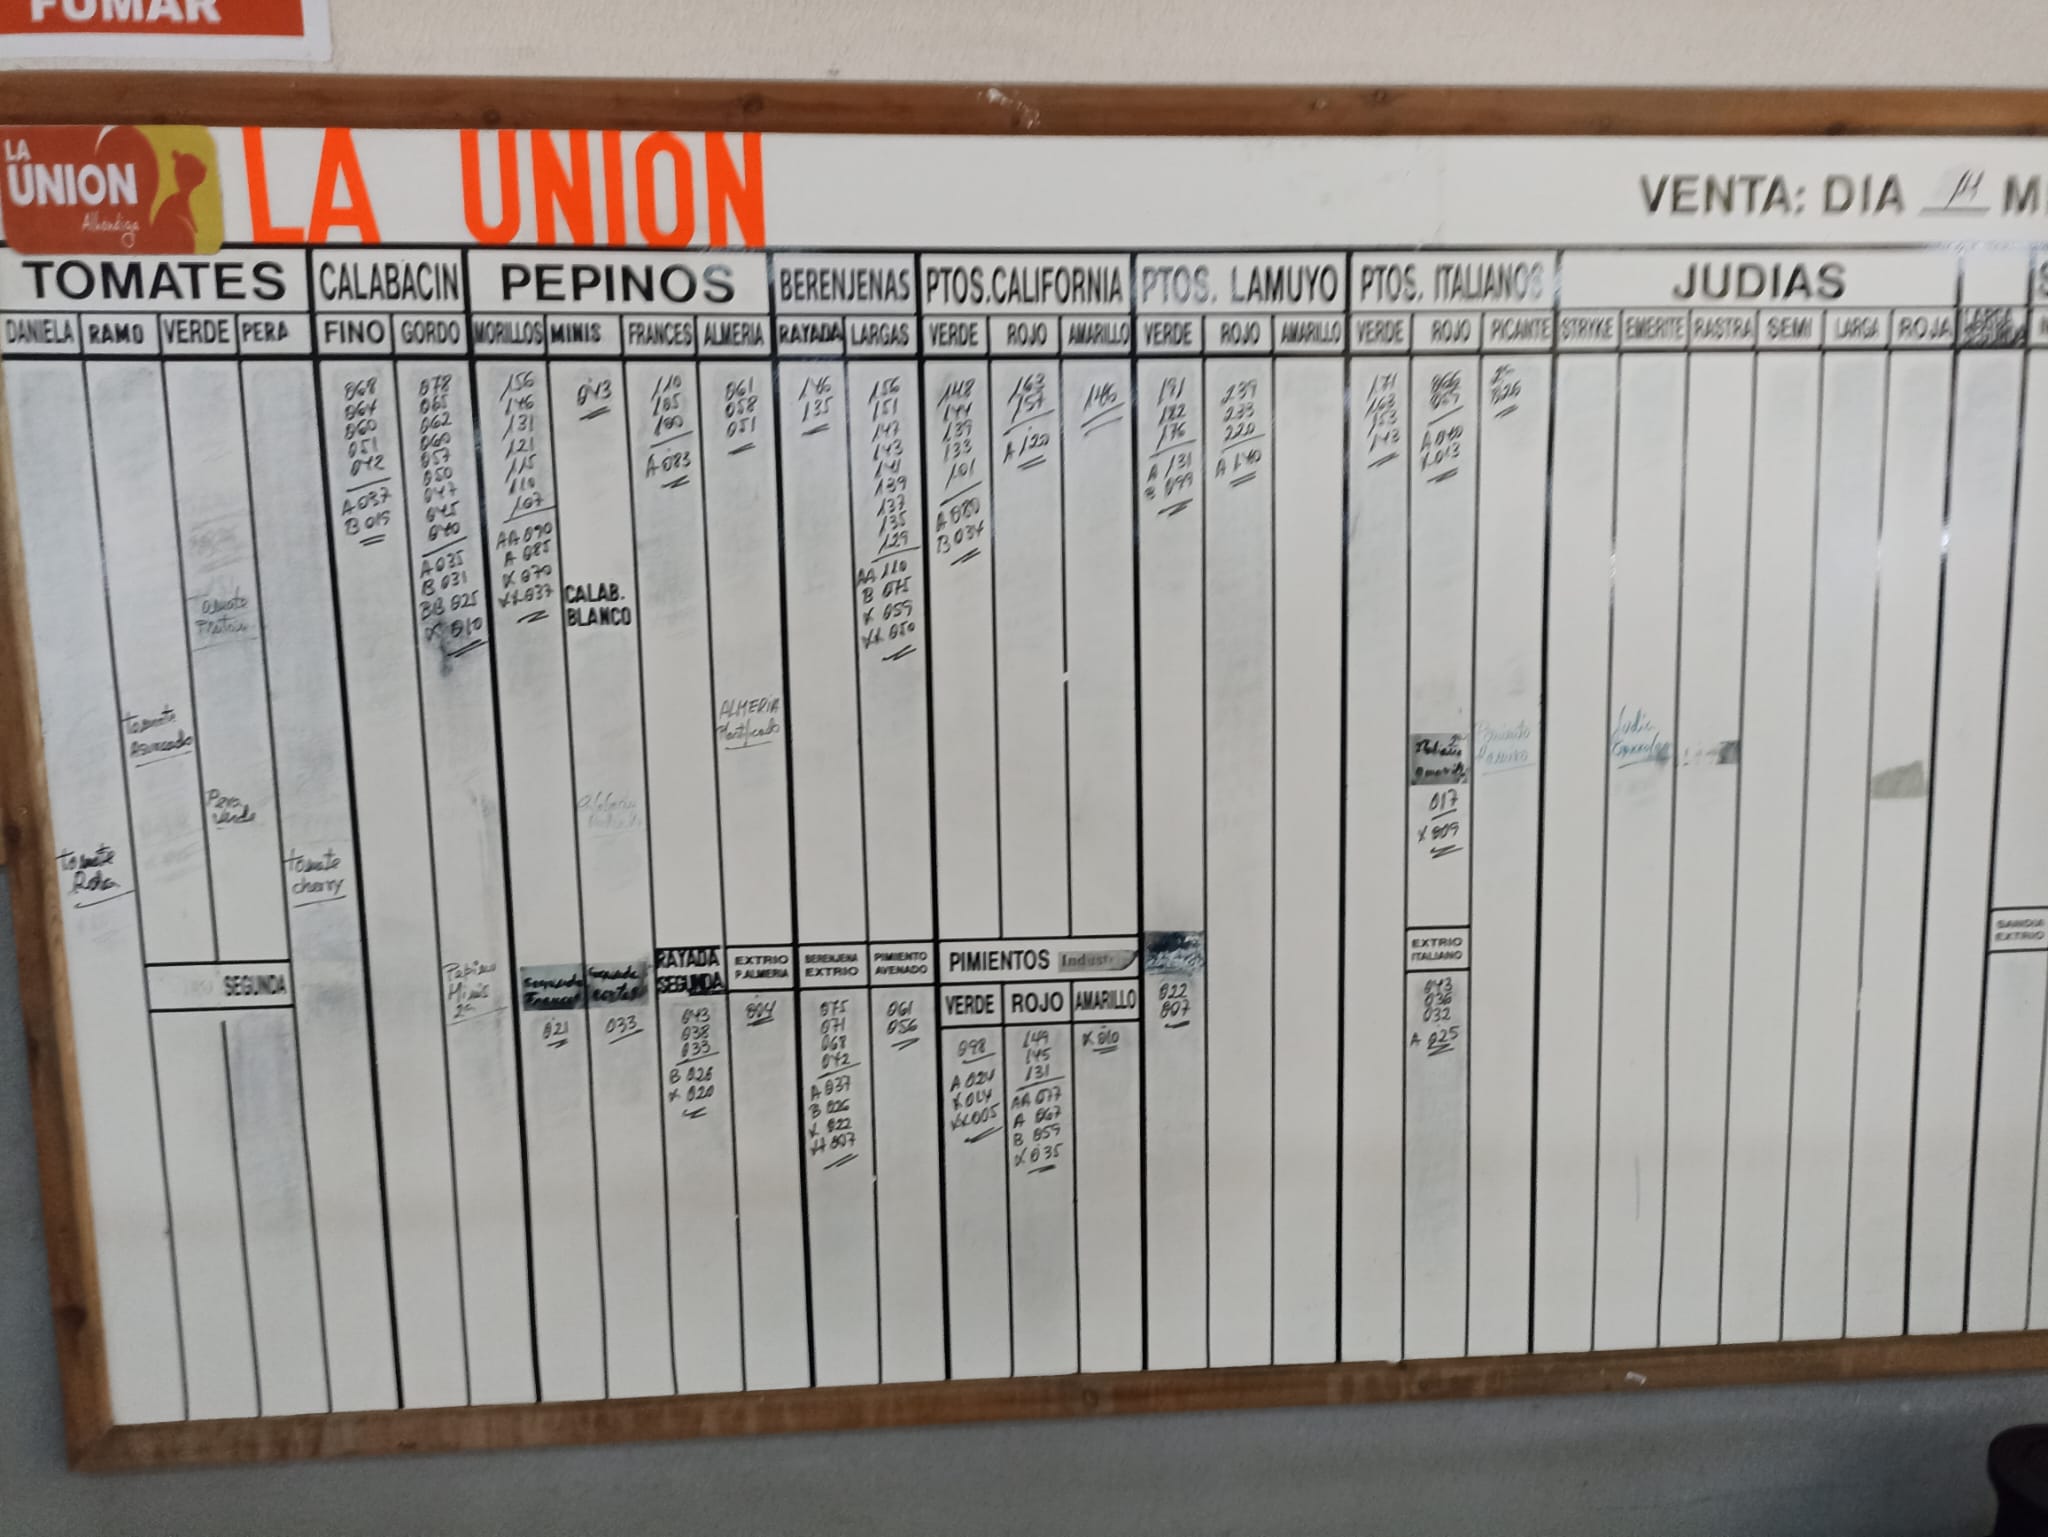 FUMAR
LA
UNION
Alhóndiga
LA UNION
VENTA: DIA 14 M
TOMATES CALABACIN PEPINOS BERENJENAS PTOS.CALIFORNIA PTOS. LAMUYO PTOS. ITALIANOS JUDIAS
DANIELA RAMO VERDE PERA FINO GORDO MORILLOS MINIS FRANCES ALMERIA RAYADA LARGAS VERDE ROJO AMARILLO VERDE ROJO AMARILLO VERDE ROJO PICANTE STRYKE EMERITE RASTRA SEMI LARGA ROJA
068
064
060
051
042
A 037
B 019
078
065
062
060
057
050
047
045
040
A 035
B 031
BB 025
X 010
156
146
131
121
115
110
107
AA 090
A 085
X 070
XX 037
043
CALAB.
BLANCO
110
105
100
A 083
061
058
051
ALMERIA
Plastificado
146
135
156
151
147
143
141
139
137
135
129
AA 110
B 075
X 059
XX 050
148
144
139
133
101
A 080
B 034
163
157
A 120
146
191
182
176
A 131
B 099
239
233
220
A 140
171
163
153
143
066
A 040
X 013
026
017
X 009
tomate
Asurcado
Pera
Verde
tomate
Rota
tomate
cherry
SEGUNDA
Pepino
Minis
2ª
Segunda
Frances
021
Segunda
033
RAYADA
SEGUNDA
043
038
033
B 026
X 020
EXTRIO
P.ALMERIA
004
BERENJENA
EXTRIO
075
071
068
042
A 037
B 026
X 022
XX 007
PIMIENTO
AVENADO
061
056
PIMIENTOS Indust
VERDE ROJO AMARILLO
098
A 024
X 014
XX 005
149
145
131
AA 077
A 067
B 059
X 035
X 010
022
007
EXTRIO
ITALIANO
043
036
032
A 025
SANDIA
EXTRIO